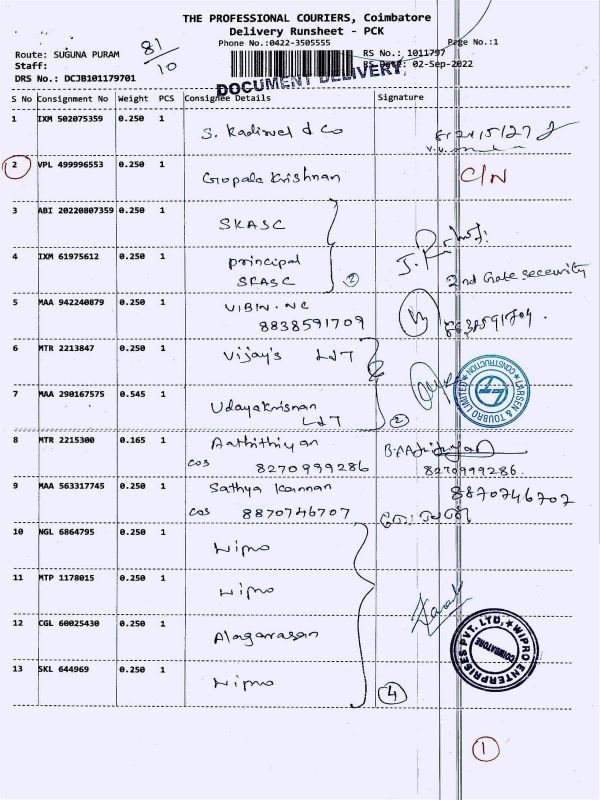 THE PROFESSIONAL COURIERS, Coimbatore
Delivery Runsheet - PCK
Phone No.:0422-3505555 Page No.:1
Route: SUGUNA PURAM 81/10 RS No.: 1011797
Staff: RS Date: 02-Sep-2022
DRS No.: DCJB101179701 DOCUMENT DELIVERY
S No Consignment No Weight PCS Consignee Details Signature
1 IXM 502075359 0.250 1 S. Kadirvel & Co
2 VPL 499996553 0.250 1 Gopala Krishnan C/N
3 ABI 20220807359 0.250 1 SKASC
4 IXM 61975612 0.250 1 principal
SKASC 2 2nd Gate security
5 MAA 942240879 0.250 1 VIBIN. NC
8838591709
6 MTR 2213847 0.250 1 Vijay's L&T
LARSEN & TOUBRO LIMITED CONSTRUCTION
7 MAA 290167575 0.545 1 Udayakrisnan
L&T 2
8 MTR 2215300 0.165 1 Aathithiyan
cos 8270999286 8270999286.
9 MAA 563317745 0.250 1 Sathya Kannan 8870746707
cos 8870746707
10 NGL 6864795 0.250 1 Wipro
11 MTP 1178015 0.250 1 Wipro
12 CGL 60025430 0.250 1 Alagarrasan
WIPRO ENTERPRISES PVT. LTD, COIMBATORE
13 SKL 644969 0.250 1 Wipro
4
1